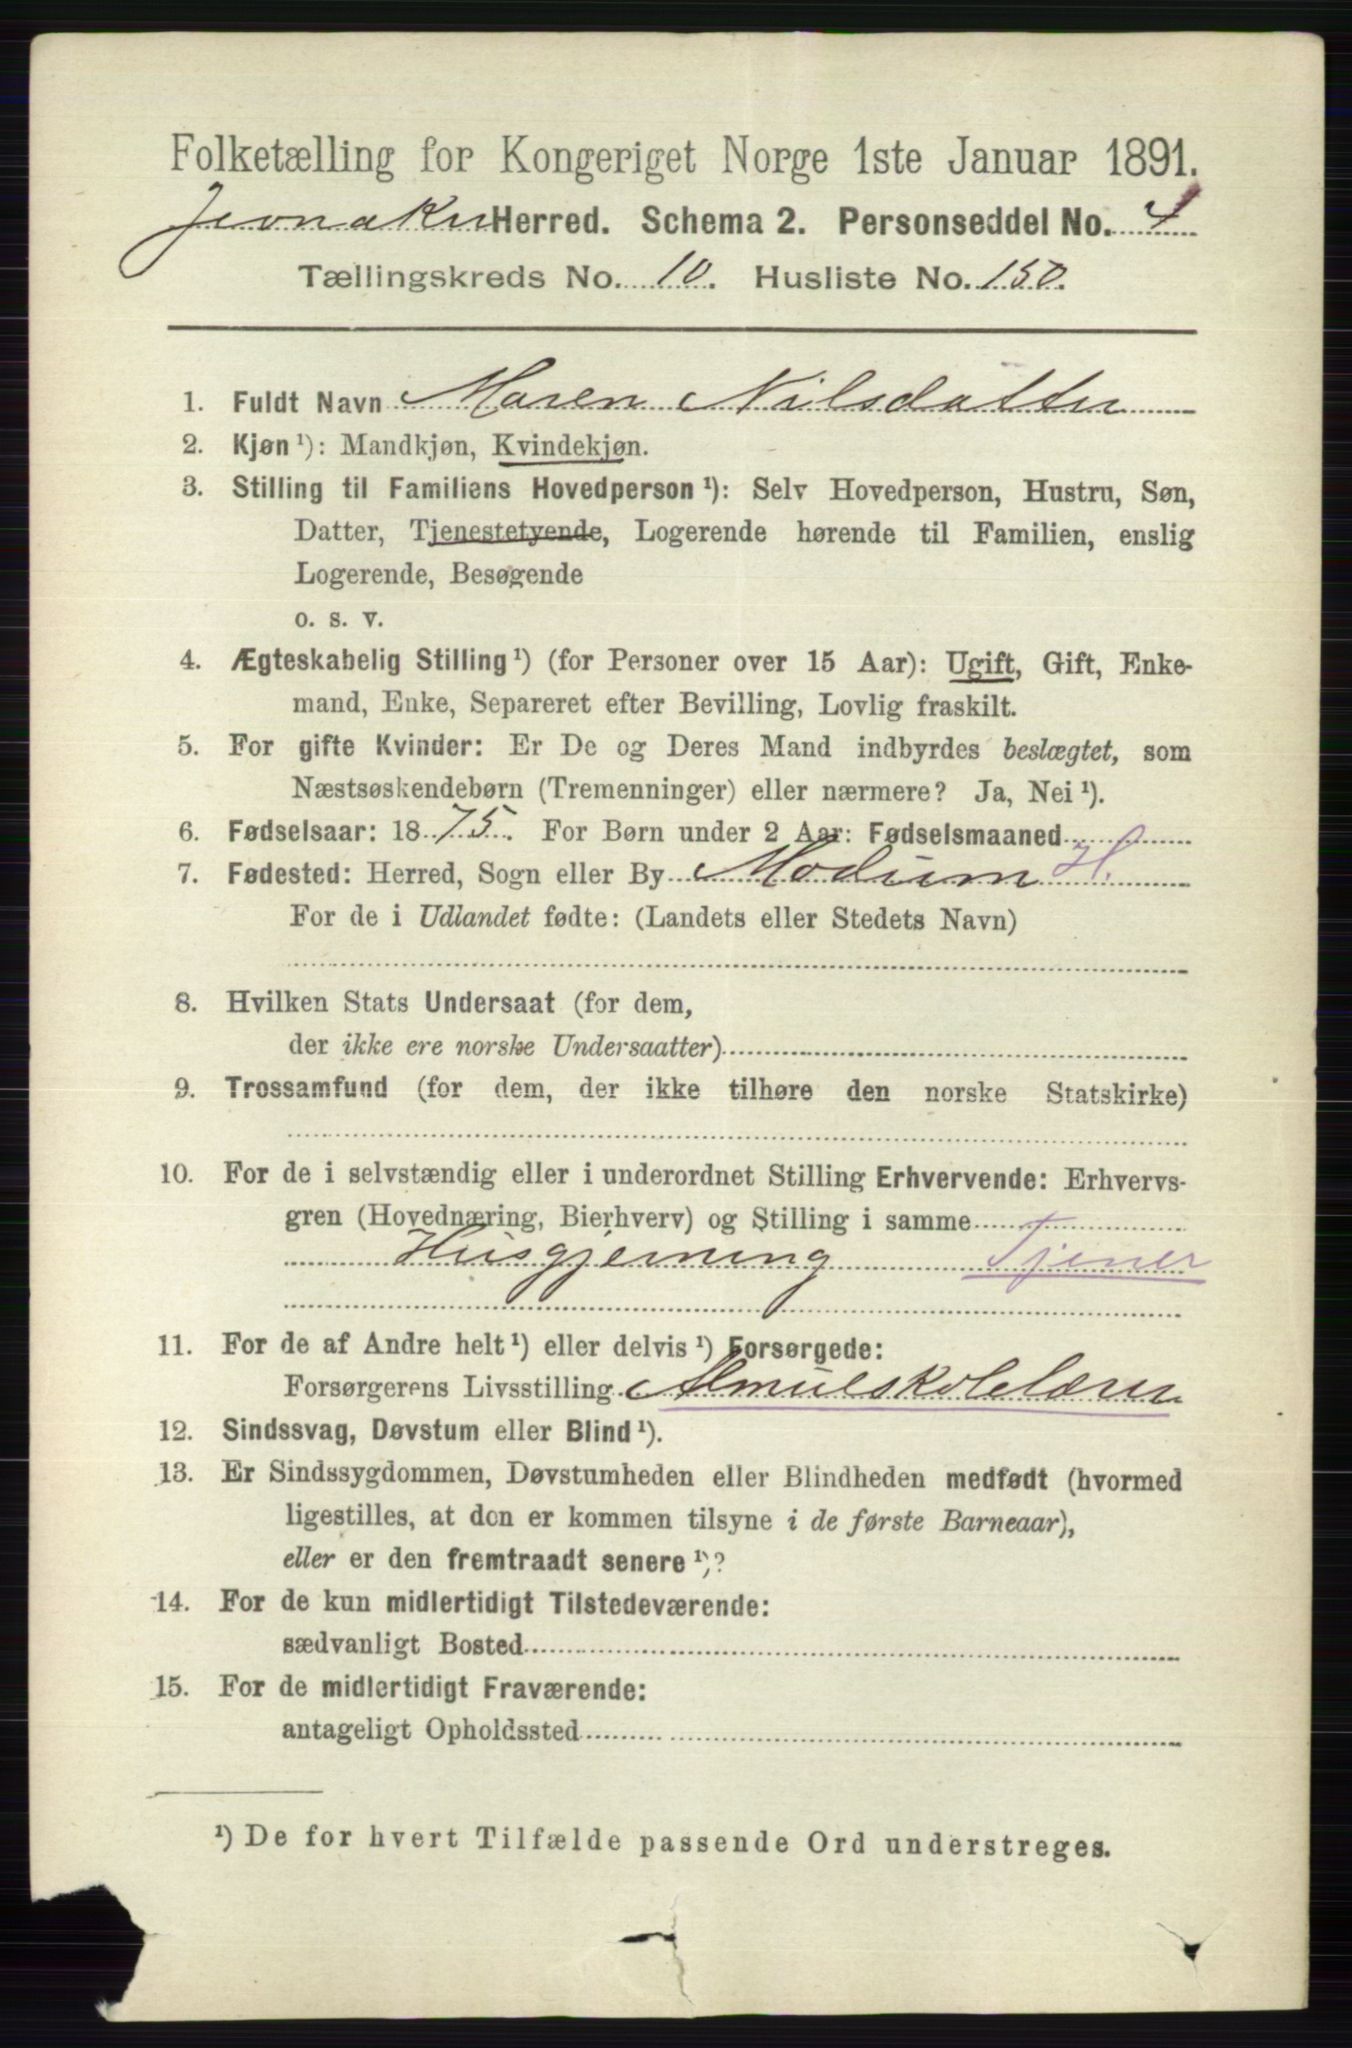 Folketælling for Kongeriget Norge 1ste Januar 1891.
Jevnaker Herred. Schema 2. Personseddel No. 4
Tællingskreds No. 10. Husliste No. 150.
1. Fuldt Navn Maren Nilsdatter
2. Kjøn ¹): Mandkjøn, Kvindekjøn.
3. Stilling til Familiens Hovedperson ¹): Selv Hovedperson, Hustru, Søn,
Datter, Tjenestetyende, Logerende hørende til Familien, enslig
Logerende, Besøgende
o. s. v.
4. Ægteskabelig Stilling ¹) (for Personer over 15 Aar): Ugift, Gift, Enke-
mand, Enke, Separeret efter Bevilling, Lovlig fraskilt.
5. For gifte Kvinder: Er De og Deres Mand indbyrdes beslægtet, som
Næstsøskendebørn (Tremenninger) eller nærmere? Ja, Nei ¹).
6. Fødselsaar: 1875. For Børn under 2 Aar: Fødselsmaaned
7. Fødested: Herred, Sogn eller By Modum H.
For de i Udlandet fødte: (Landets eller Stedets Navn)
8. Hvilken Stats Undersaat (for dem,
der ikke ere norske Undersaatter)
9. Trossamfund (for dem, der ikke tilhøre den norske Statskirke)
10. For de i selvstændig eller i underordnet Stilling Erhvervende: Erhvervs-
gren (Hovednæring, Bierhverv) og Stilling i samme
Husgjerning Tjener
11. For de af Andre helt ¹) eller delvis ¹) Forsørgede:
Forsørgerens Livsstilling Almueskolelærer
12. Sindssvag, Døvstum eller Blind ¹).
13. Er Sindssygdommen, Døvstumheden eller Blindheden medfødt (hvormed
ligestilles, at den er kommen tilsyne i de første Barneaar),
eller er den fremtraadt senere ¹)?
14. For de kun midlertidigt Tilstedeværende:
sædvanligt Bosted
15. For de midlertidigt Fraværende:
antageligt Opholdssted
¹) De for hvert Tilfælde passende Ord understreges.